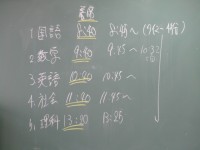 着席
1. 国語 8:40 8:45～
2. 数学 9:40 9.45～
3. 英語 10:40 10.45～
4. 社会 11:40 11.45～
5. 理科 13:20 13:25